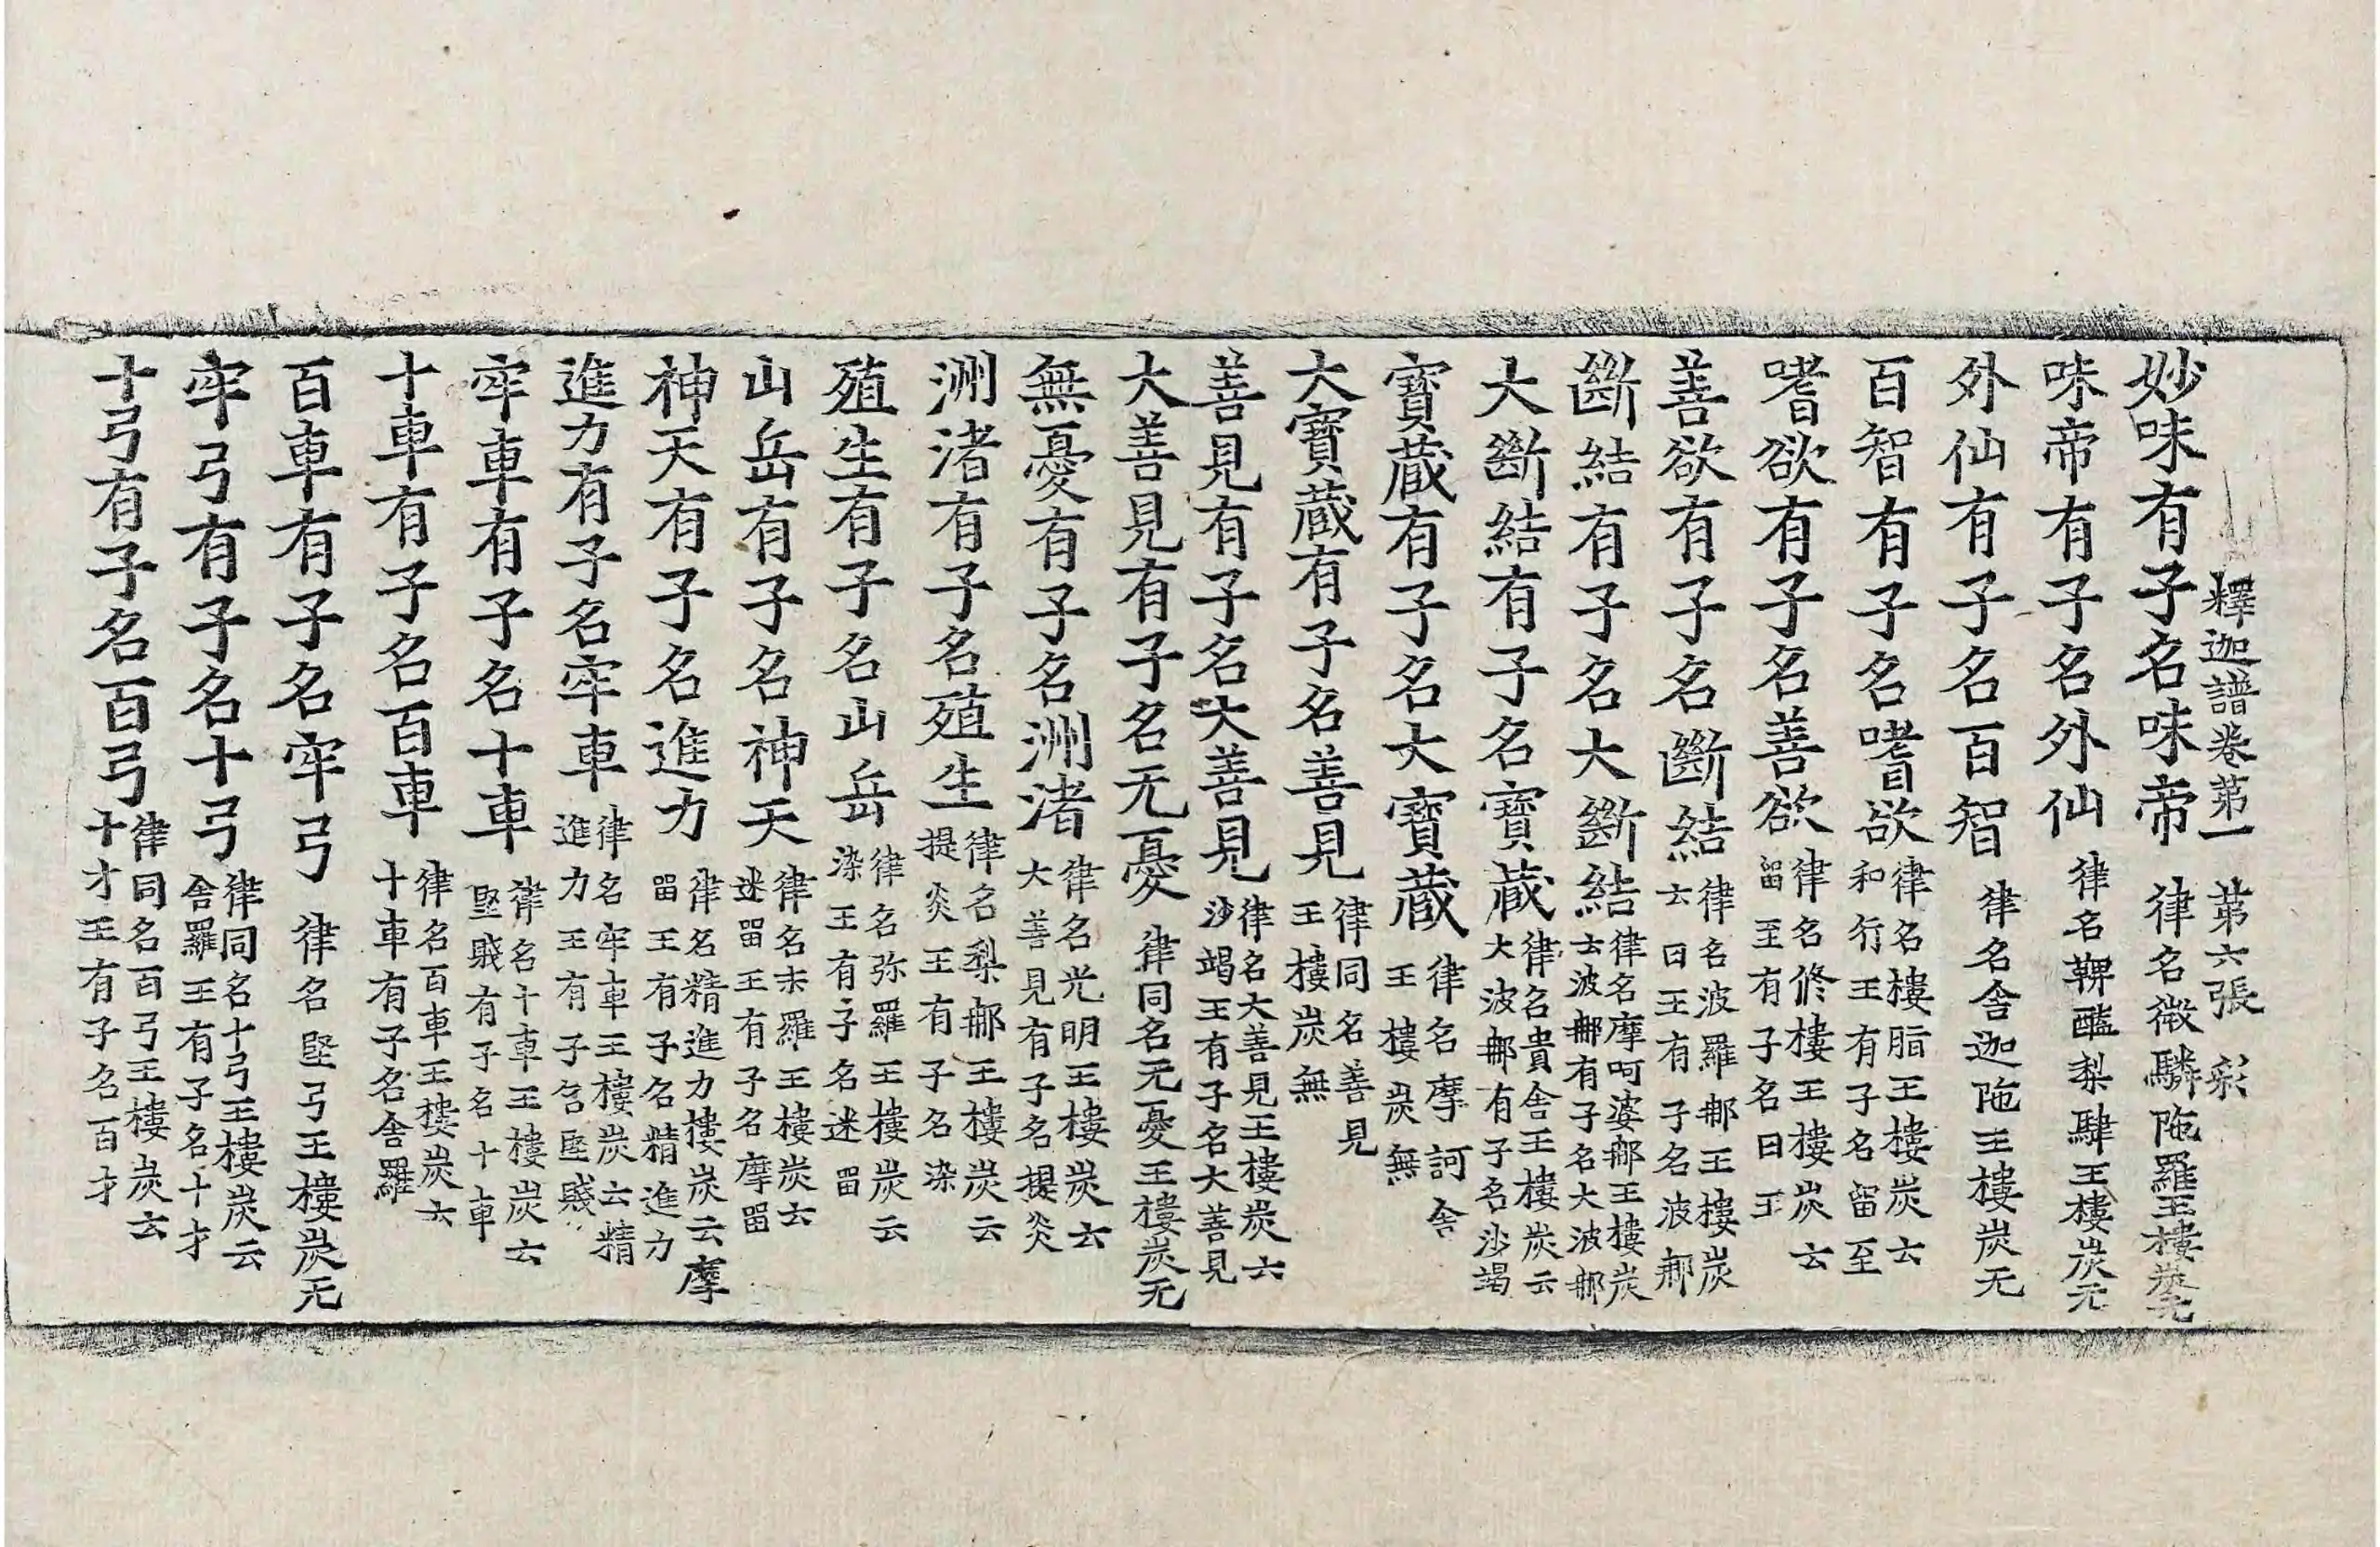 釋迦譜卷第一　第六張　彩
妙味有子名味帝律名微驎陁羅王樓炭无
味帝有子名外仙律名鞞醯梨肆王樓炭无
外仙有子名百智律名舍迦陁王樓炭无
百智有子名嗜欲律名樓脂王樓炭云和行王有子名留至
嗜欲有子名善欲律名修樓王樓炭云留至有子名日王
善欲有子名斷結律名波羅那王樓炭云日王有子名波那
斷結有子名大斷結律名摩呵婆那王樓炭云波那有子名大波那
大斷結有子名寶蔵律名貴舍王樓炭云大波那有子名沙竭
寶蔵有子名大寶蔵律名摩訶舍王樓炭無
大寶蔵有子名善見律同名善見王樓炭無
善見有子名大善見律名大善見王樓炭云沙竭王有子名大善見
大善見有子名无憂律同名无憂王樓炭无
無憂有子名洲渚律名光明王樓炭云大善見有子名提炎
洲渚有子名殖生律名梨那王樓炭云提炎王有子名染
殖生有子名山岳律名弥羅王樓炭云染王有子名迷留
山岳有子名神天律名末羅王樓炭云迷留王有子名摩留
神天有子名進力律名精進力樓炭云摩留王有子名精進力
進力有子名牢車律名牢車王樓炭云精進力王有子名堅賤
牢車有子名十車律名十車王樓炭云堅賤有子名十車
十車有子名百車律名百車王樓炭云十車有子名舍羅
百車有子名牢弓律名堅弓王樓炭无
牢弓有子名十弓律同名十弓王樓炭云舍羅王有子名十才
十弓有子名百弓律同名百弓王樓炭云十才王有子名百才